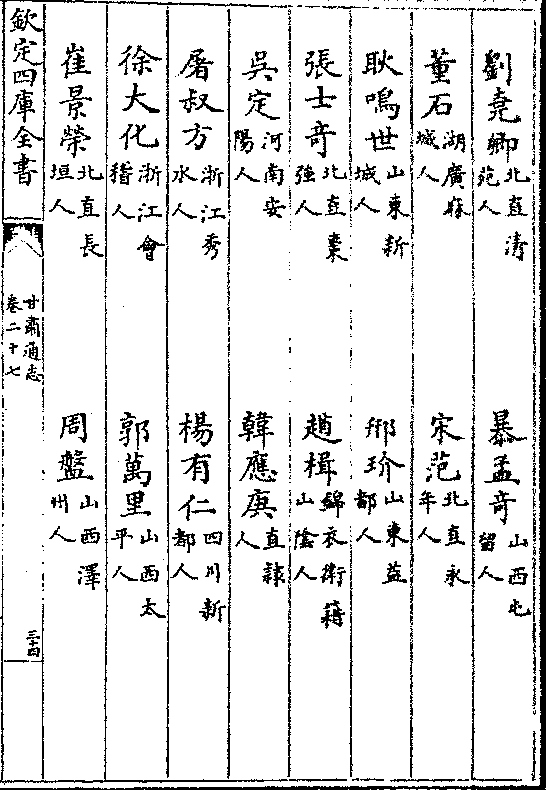 劉堯卿北直清苑人 暴孟奇山西屯留人
董石湖廣麻城人 宋范北直永年人
耿鳴世山東新城人 邢玠山東益都人
張士奇北直棗強人 趙楫錦衣衛籍山隂人
吳定河南安陽人 韓應庚直隸人
屠叔方浙江秀水人 楊有仁四川新都人
徐大化浙江會稽人 郭萬里山西太平人
崔景榮北直長垣人 周盤山西澤州人
欽定四庫全書 甘肅通志卷二十七 三十四